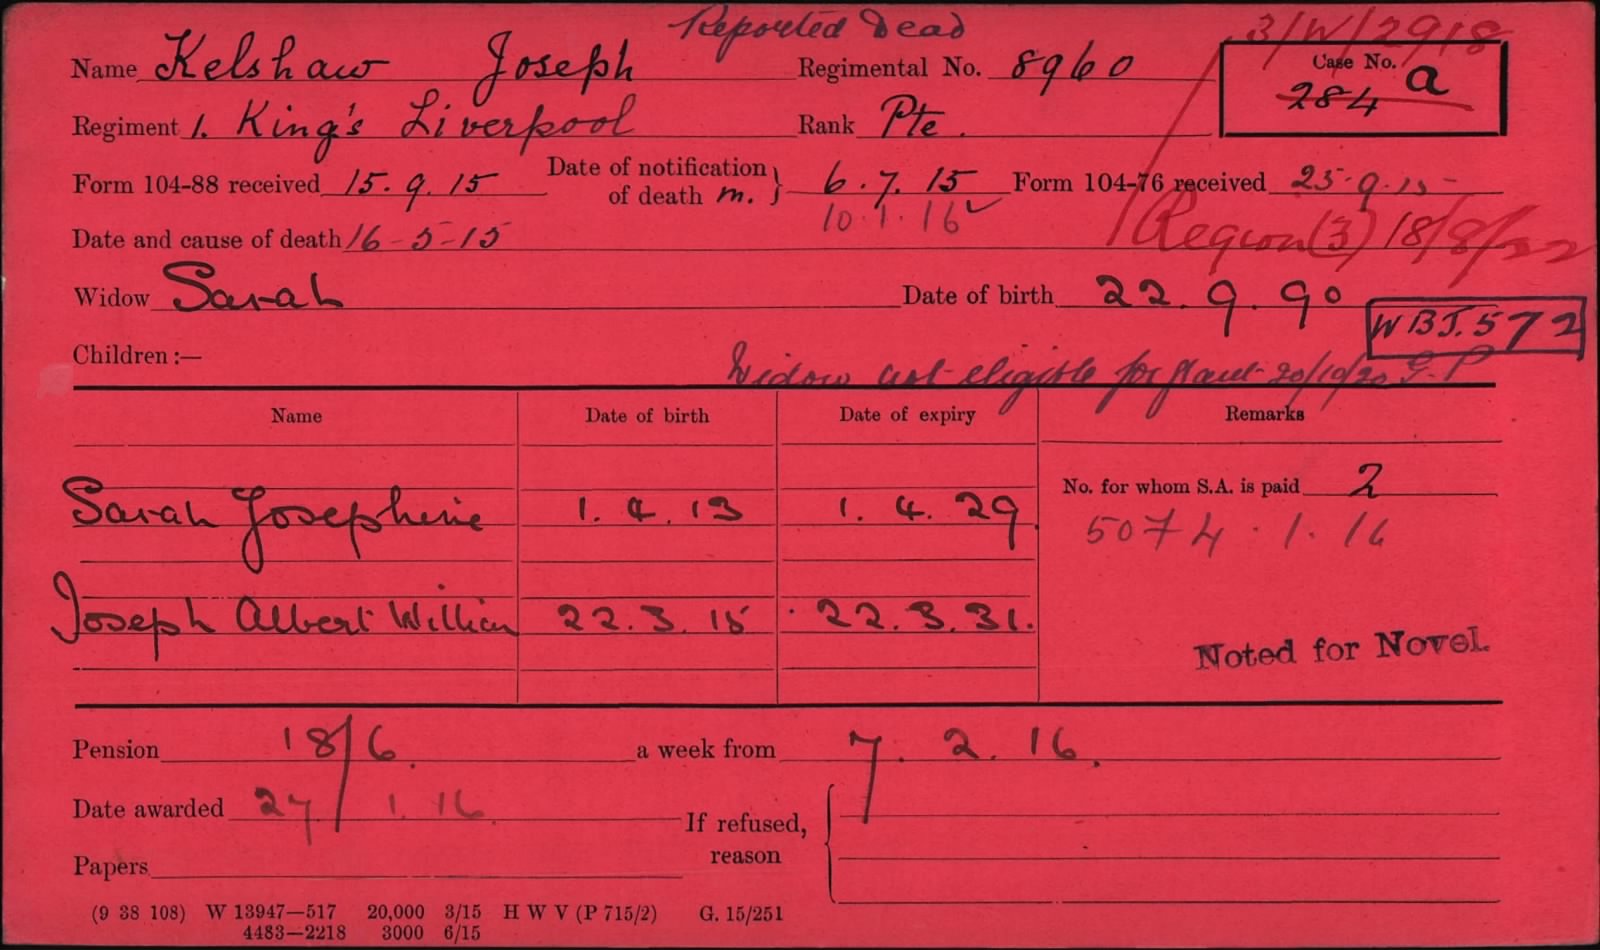 Reported Dead
3/W/2918
Name Kelshaw Joseph Regimental No. 8960 Case No. 284 a
Regiment 1. King's Liverpool Rank Pte.
Form 104-88 received 15.9.15 Date of notification of death m. } 6.7.15 Form 104-76 received 25.9.15
10.1.16
Date and cause of death 16-5-15 Region (3) 18/8/22
Widow Sarah Date of birth 22.9.90
WBJ.572
Children :—
Widow not eligible for grant 20/10/20 G.P
Name Date of birth Date of expiry Remarks
No. for whom S.A. is paid 2
Sarah Josephine 1.4.13 1.4.29.
5074.1.16
Joseph Albert William 22.3.15 22.3.31.
Noted for Novel.
Pension 18/6. a week from 7.2.16.
Date awarded 27/1.16.
If refused, reason
Papers
(9 38 108) W 13947—517 20,000 3/15 H W V (P 715/2) G. 15/251
4483—2218 3000 6/15